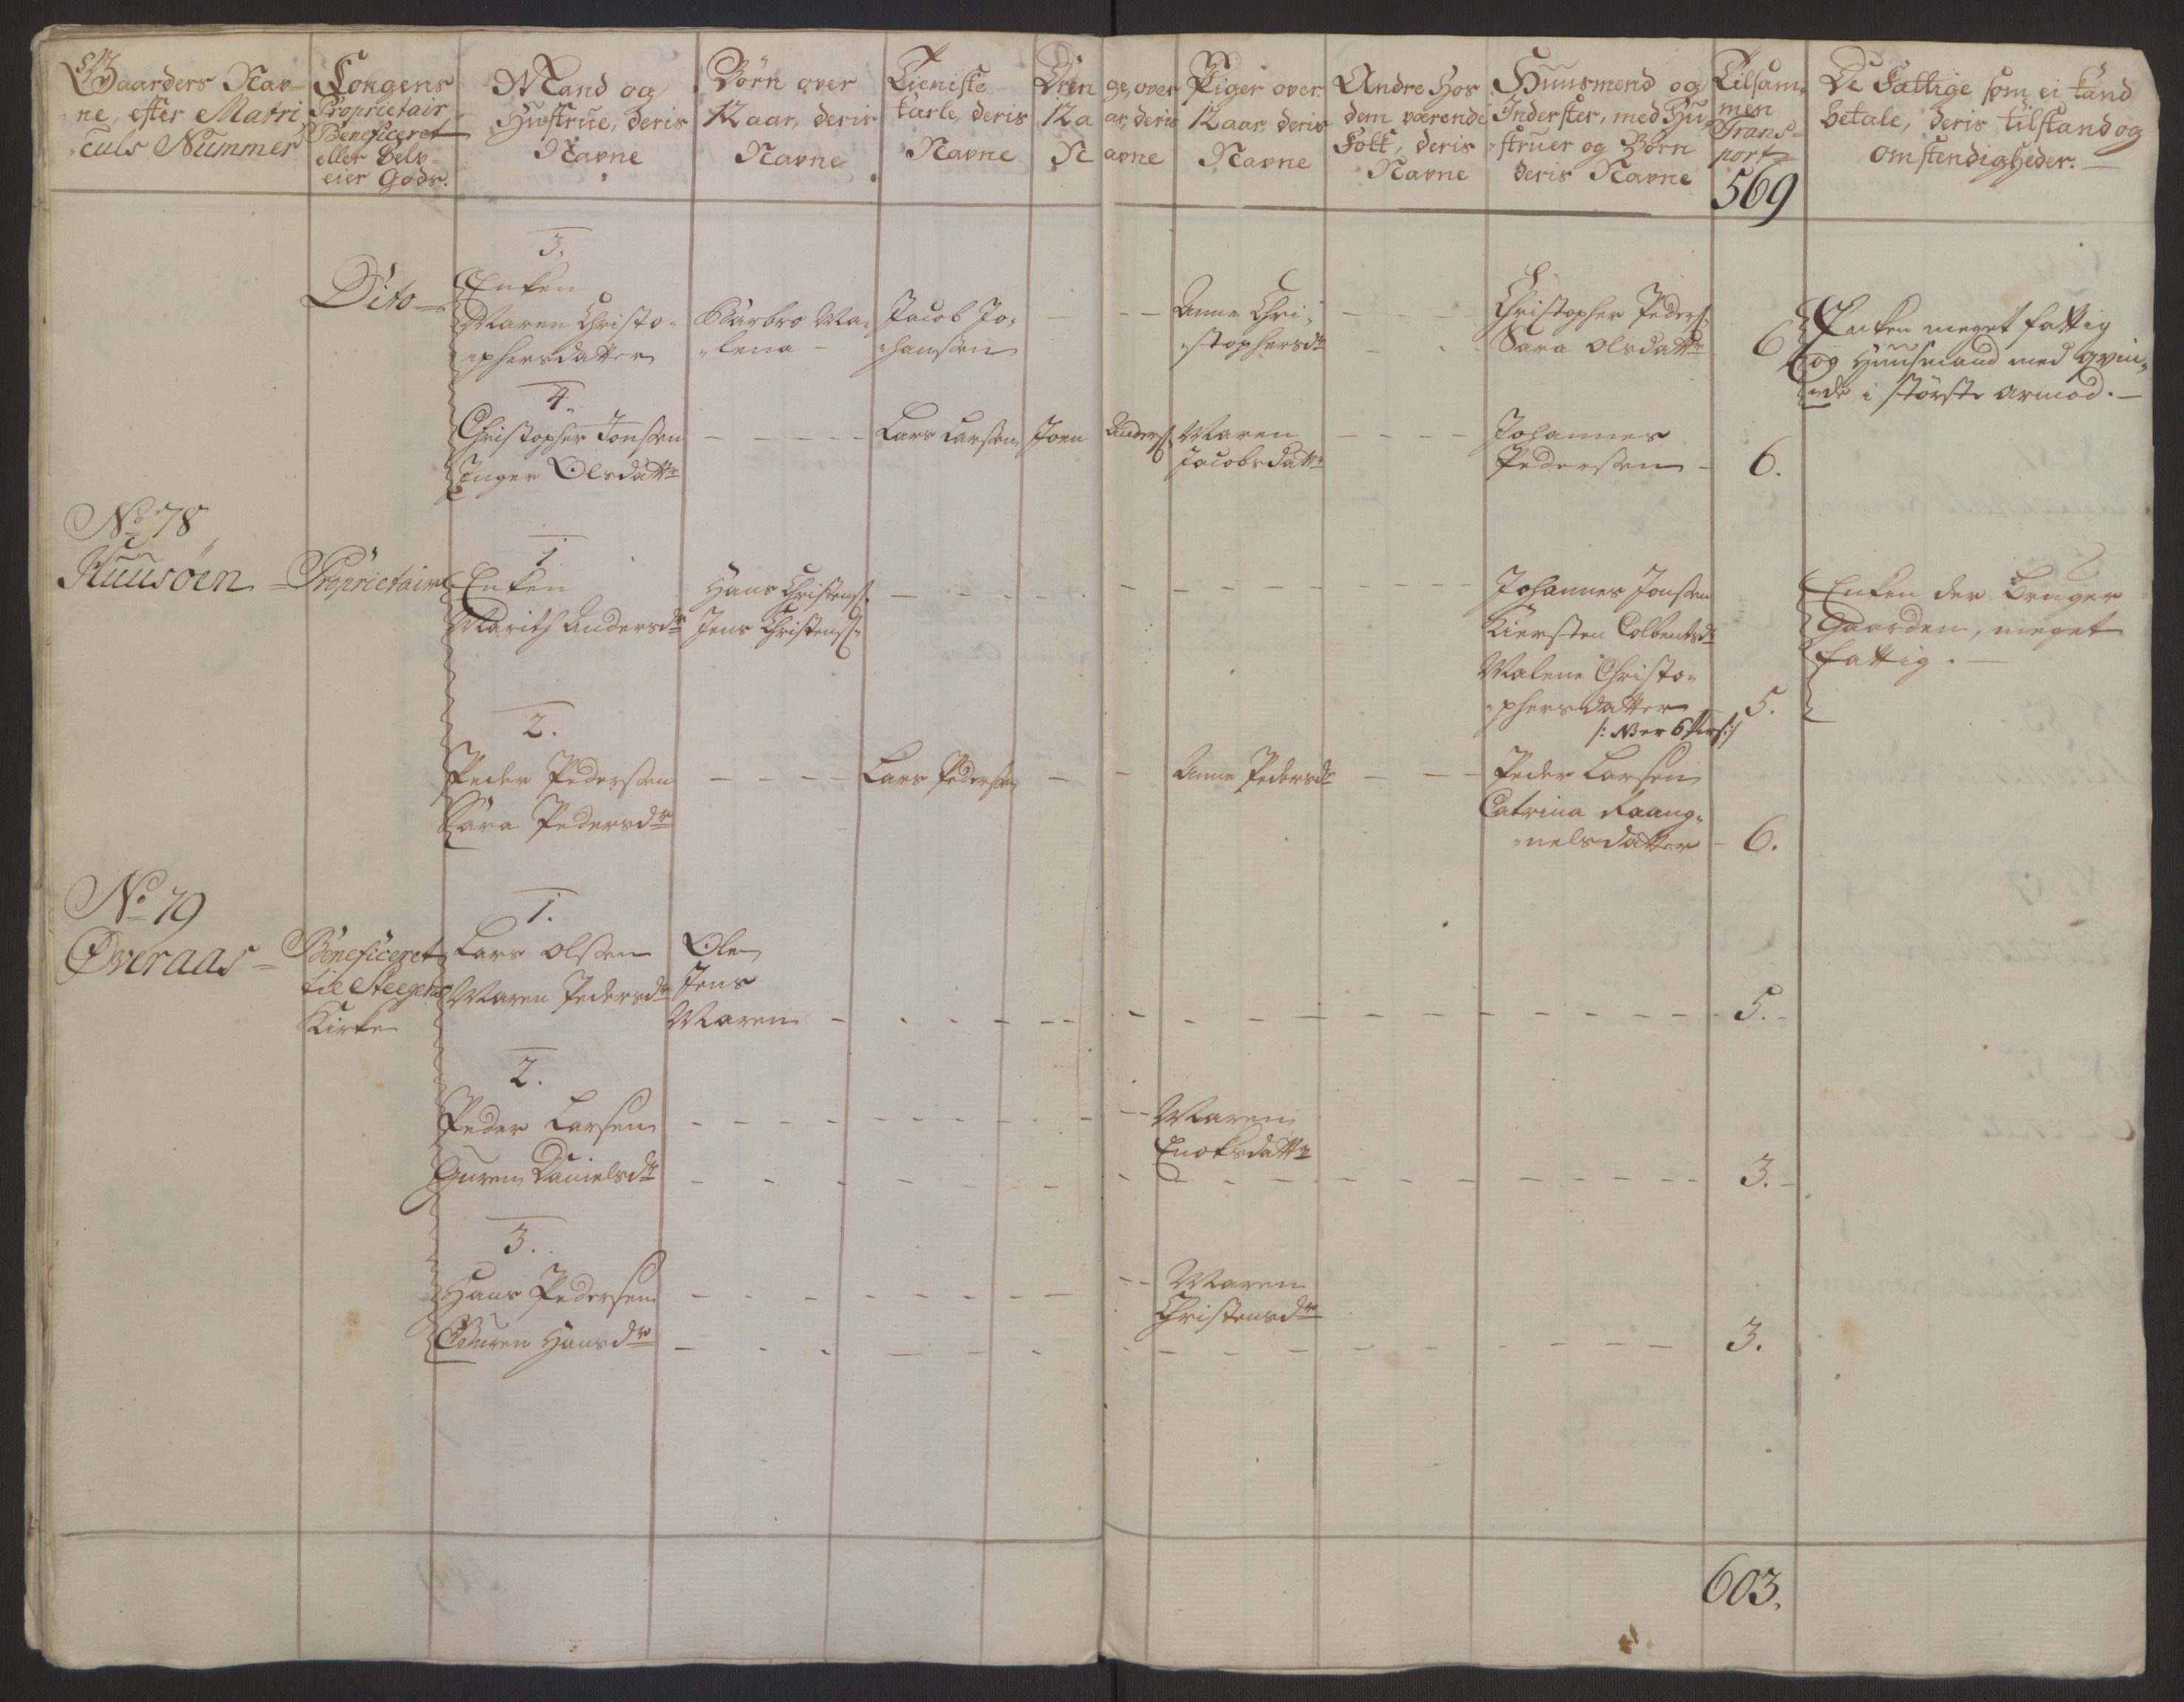 Gaarders Nav-
ne, efter Matri
culs Nummer
Kongens
Proprietair
Beneficeret
eller Selv-
eier Gods.
Mand og
Hustrue, deris
Navne
Börn over
12 aar, deris
Navne
Tieniste
karle, deris
Navne
Dren ge, over
12 a ar, deris
N avne
Piger over
12 aar, deris
Navne
Andre hos
dem værende
Folk, deris
Navne
Huusmend og
Inderster, med Hu-
struer og Börn
deris Navne
Tilsam-
men
Trans-
port
569
De Fattige som ei kand
betale, deris tilstand og
omstendigheder.
3.
Dito
Enken
Maren Christo-
phersdatter
Barbro Ma-
lena
Jacob Jo-
hansen
Anne Chri-
stophersdtr
Christopher Peders.
Sara Olsdattr
6
Enken meget fattig
og Huusmand med qvin-
de i störste armod.
4.
Christopher Jonsen
Inger Olsdattr
Lars Larsen
Joen Anders.
Maren
Jacobsdattr
Johannes
Pedersen
6.
No 78
Huusöen
Proprietair
1.
Enken
Marith Andersdr
Hans Christens.
Jens Christens.
Johannes Jonsen
Kiersten Colbentsdr
Malene Christo-
phersdatter
5.
/: NB er 6 Pers :/
Enken der bruger
Gaarden, meget
fattig.
2.
Peder Pedersen
Sara Pedersdr
Lars Pedersen
Anne Pedersdr
Peder Larsen
Catrina Raang-
nelsdatter
6.
No 79
Överaas
Beneficeret
til Steegens
Kirke
1.
Lars Olsen
Maren Pedersdr
Ole
Jens
Maren
5.
2.
Peder Larsen
Guren Danielsdr
Maren
Enoksdattr
3.
3.
Hans Pedersen
Guren Hansdr
Maren
Christensdr
3.
603.